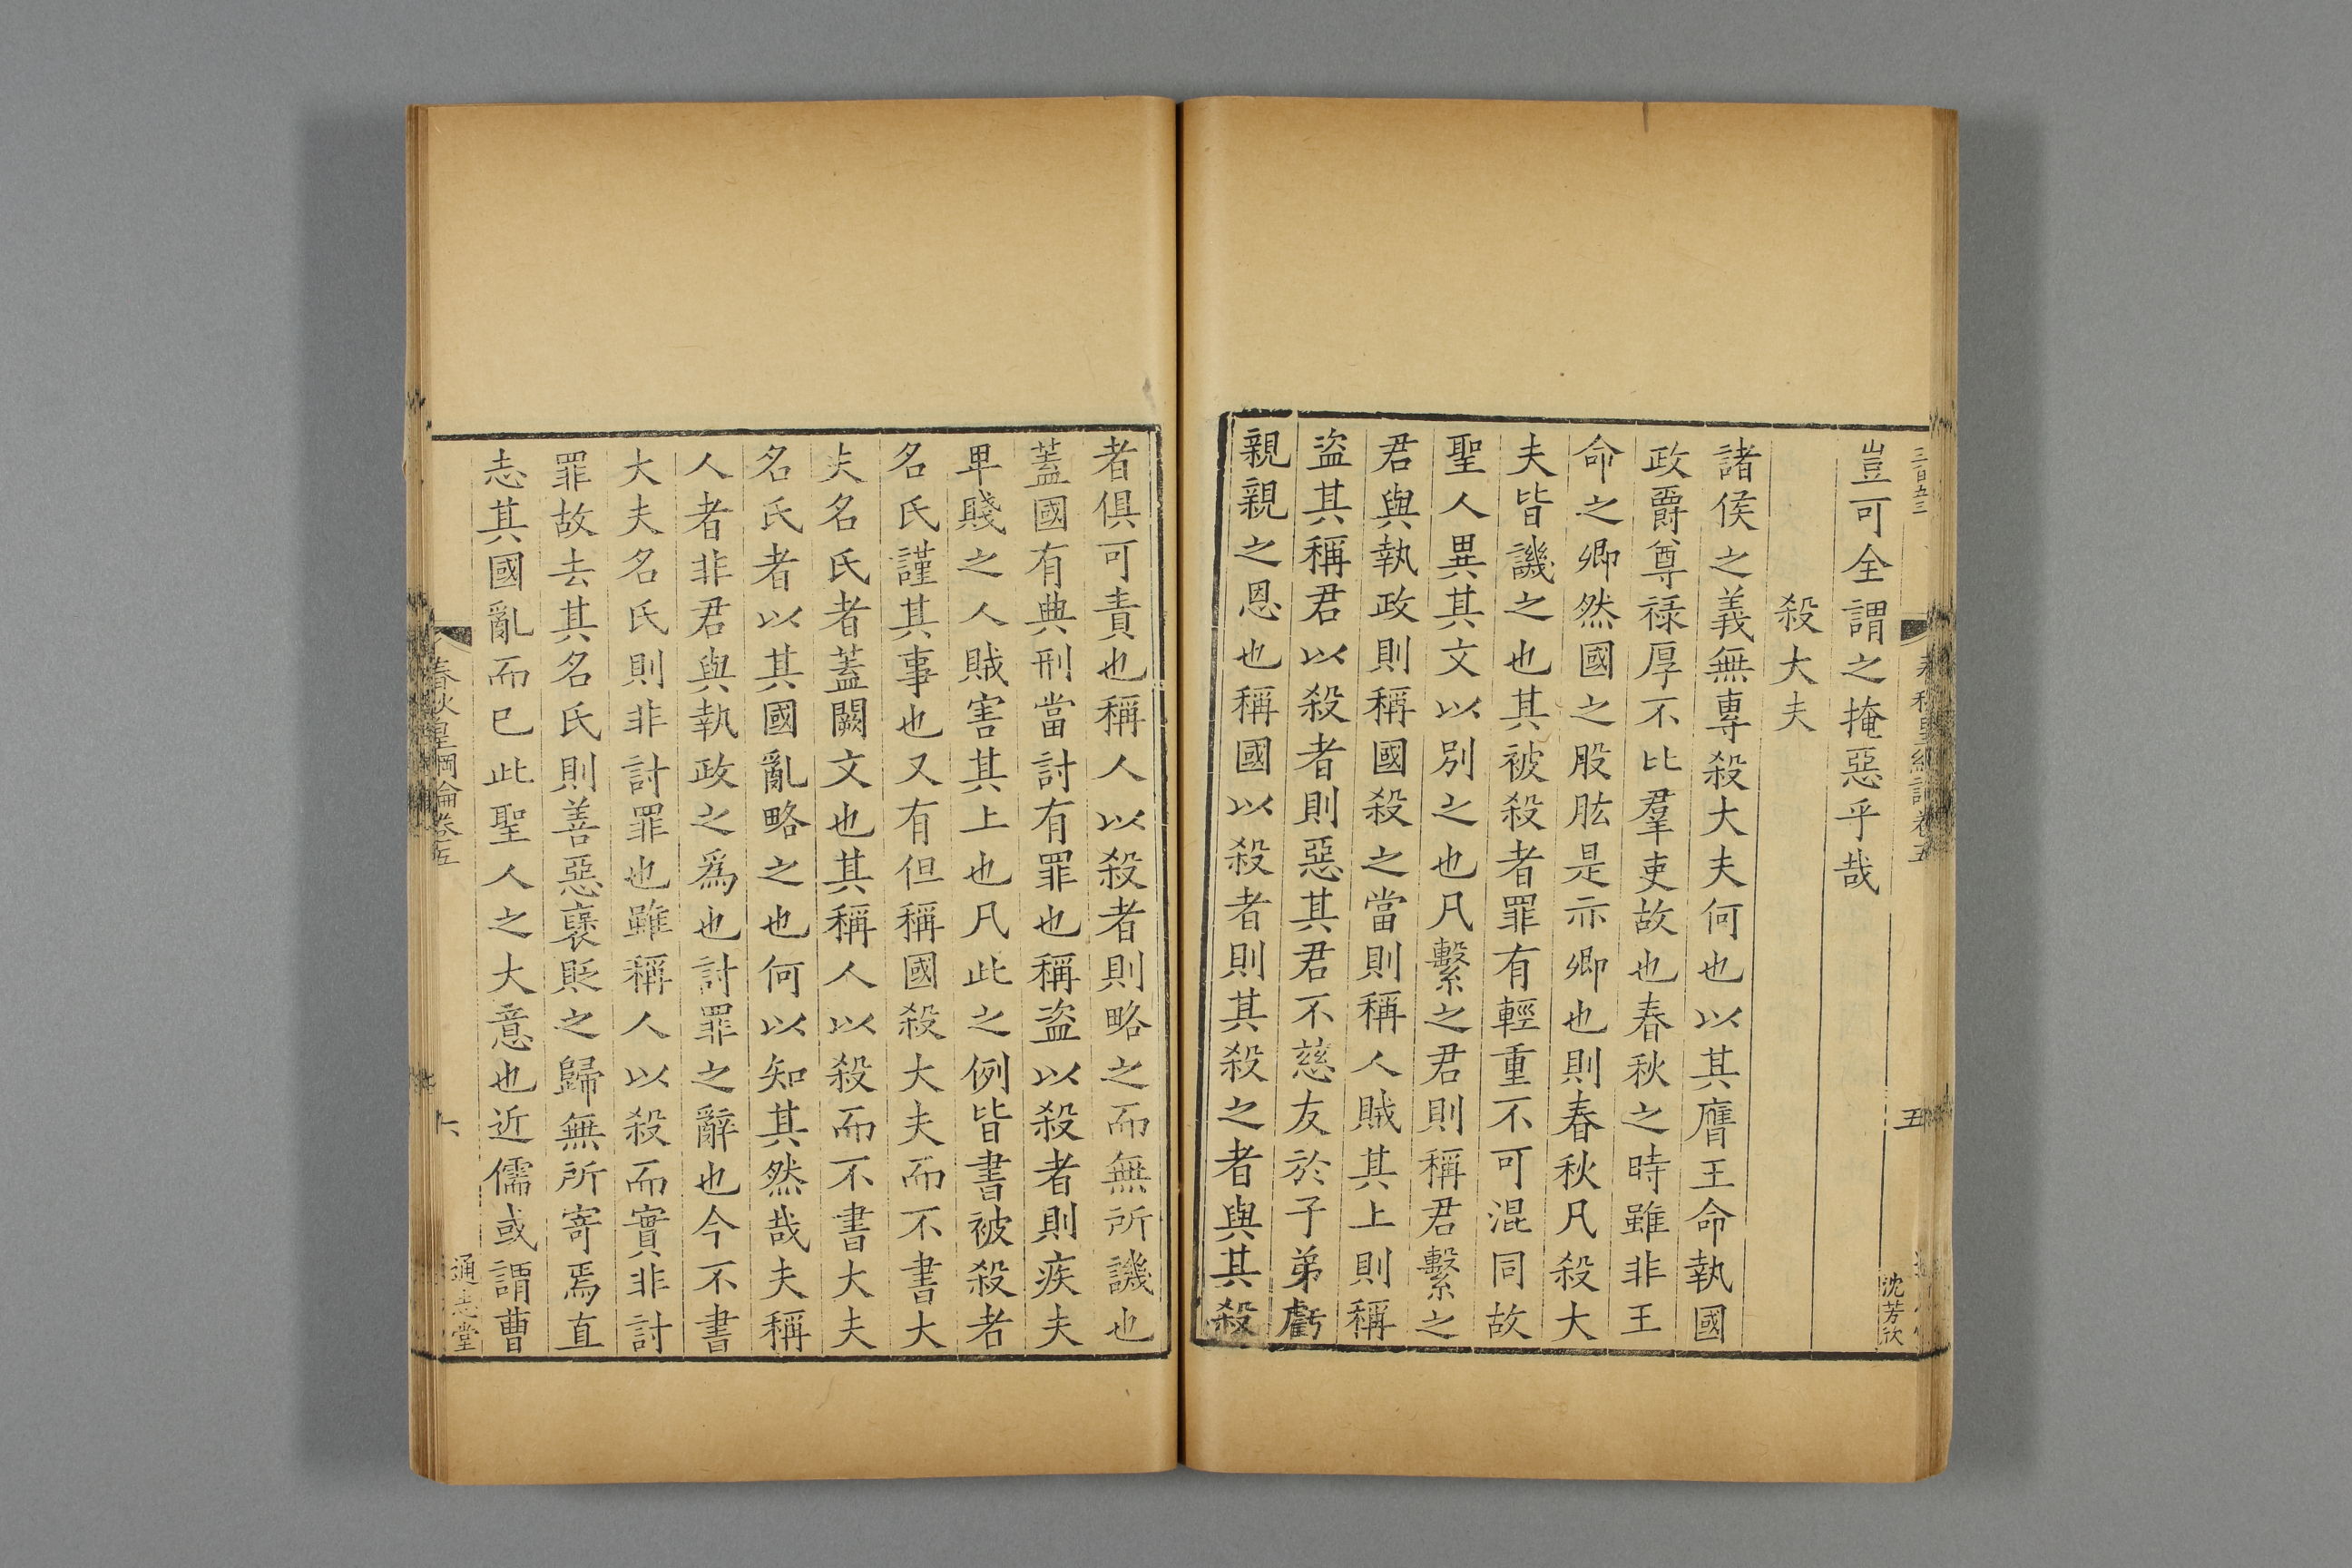 三百五三
豈可全謂之掩惡乎哉
殺大夫
諸侯之義無專殺大夫何也以其膺王命執國
政爵尊祿厚不比羣吏故也春秋之時雖非王
命之卿然國之股肱是亦卿也則春秋凡殺大
夫皆譏之也其被殺者罪有輕重不可混同故
聖人異其文以別之也凡繫之君則稱君繫之
君與執政則稱國殺之當則稱人賊其上則稱
盜其稱君以殺者則惡其君不慈友於子弟虧
親親之恩也稱國以殺者則其殺之者與其殺
五
沈芳欣
者俱可責也稱人以殺者則略之而無所譏也
蓋國有典刑當討有罪也稱盜以殺者則疾夫
卑賤之人賊害其上也凡此之例皆書被殺者
名氏謹其事也又有但稱國殺大夫而不書大
夫名氏者蓋闕文也其稱人以殺而不書大夫
名氏者以其國亂略之也何以知其然哉夫稱
人者非君與執政之爲也討罪之辭也今不書
大夫名氏則非討罪也雖稱人以殺而實非討
罪故去其名氏則善惡褒貶之歸無所寄焉直
志其國亂而已此聖人之大意也近儒或謂曹
春秋皇綱論卷五
六
通志堂